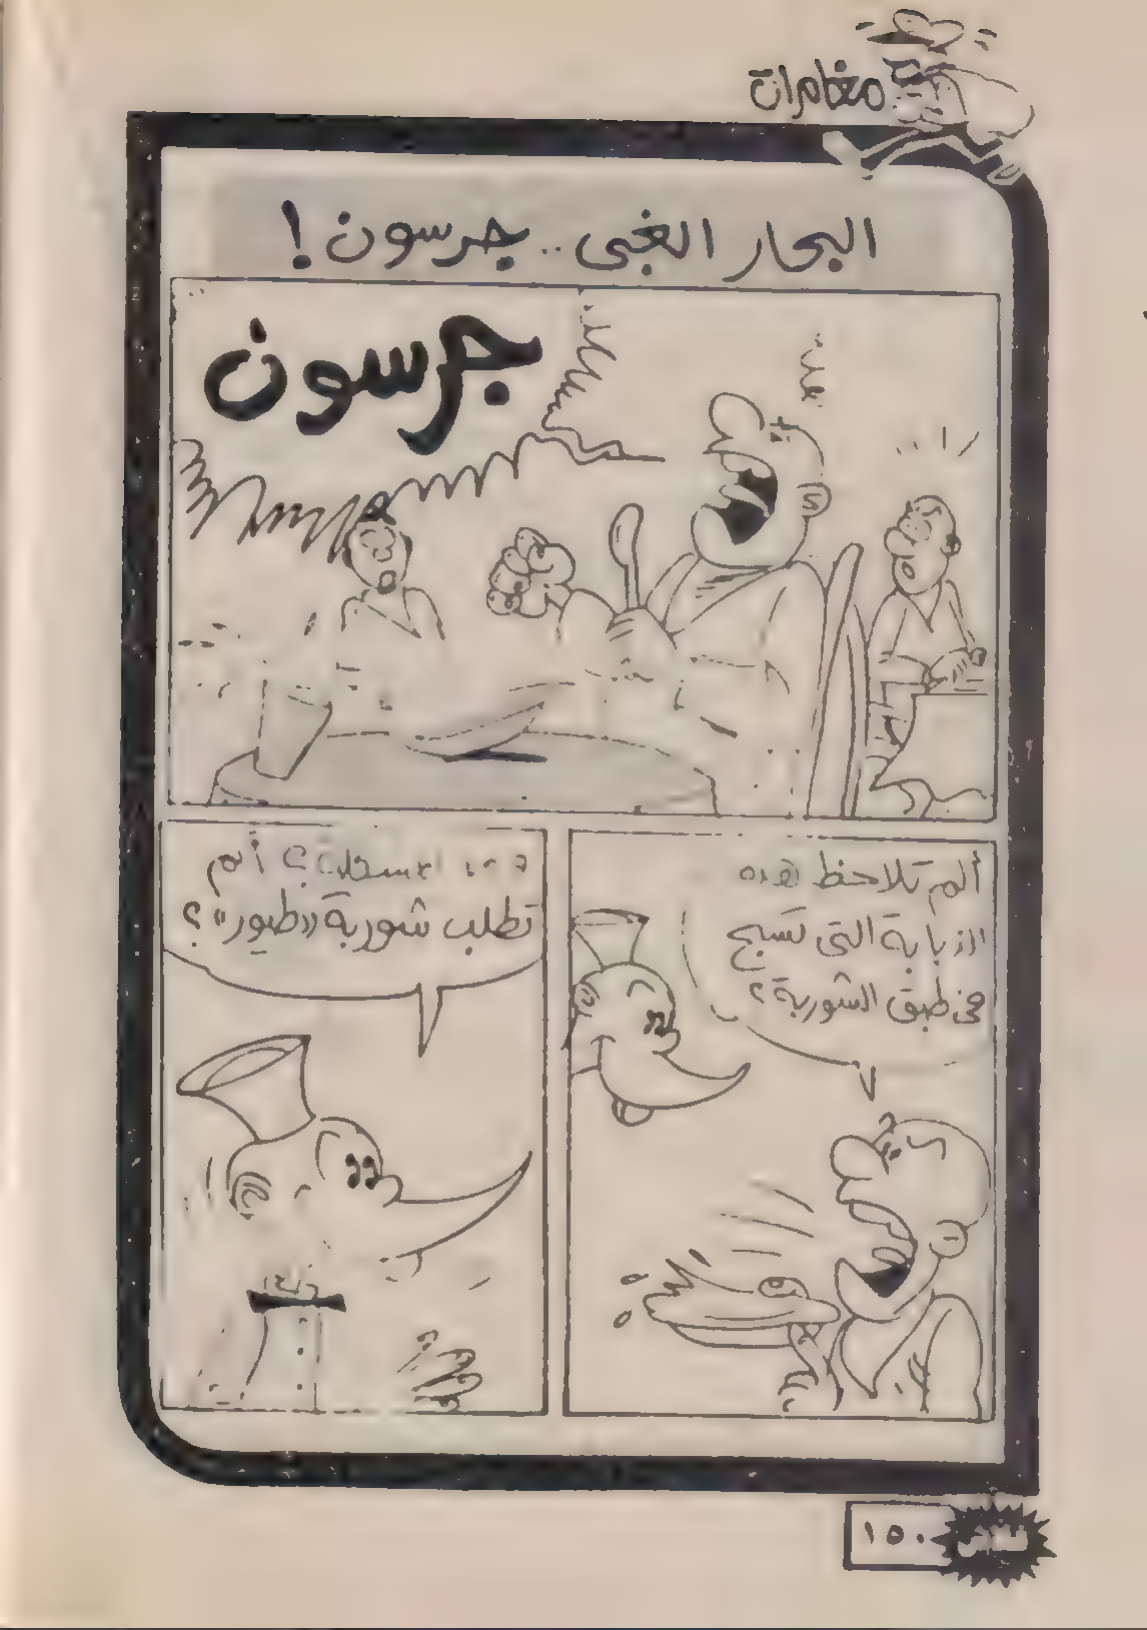 مغامرات
البحار الغبى.. جرسون!
جرسون
ألم تلاحظ هذه
الذبابة التى تسبح
فى طبق الشوربة؟
ألم
تطلب شوربة «طيور»؟
١٥٠